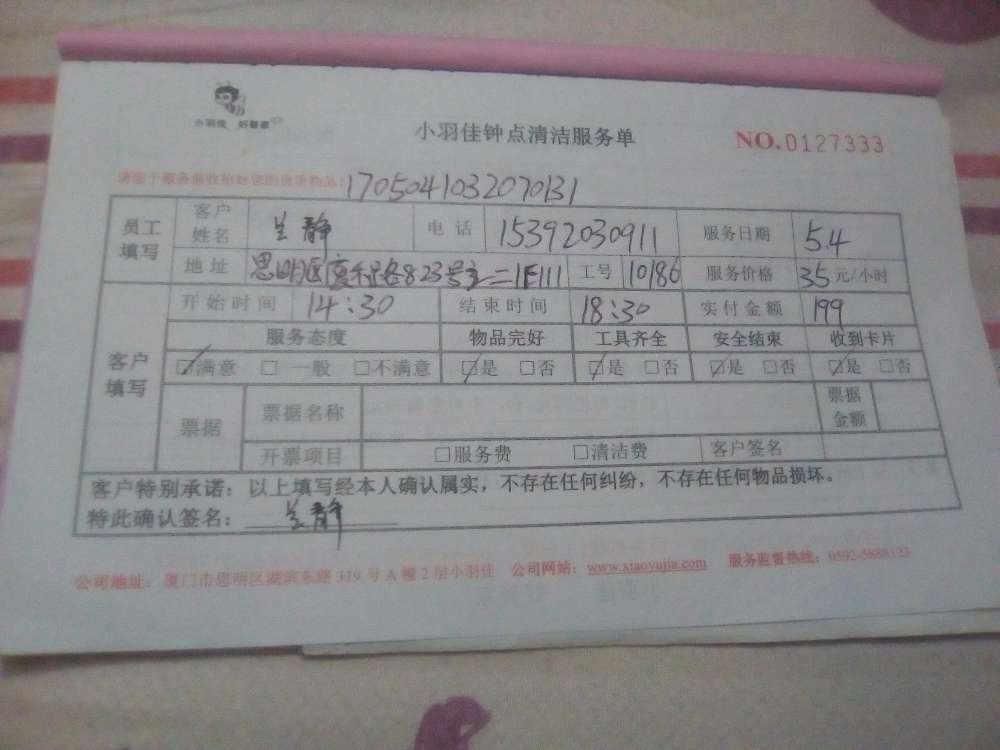 小羽佳 好管家
小羽佳钟点清洁服务单
NO.0127333
请您于服务前收拾好您的贵重物品:
1705041032070131
员工填写 客户姓名 兰静 电话 15392030911 服务日期 5.4
地址 思明区厦禾路823号之二1E111 工号 10186 服务价格 35元/小时
客户填写 开始时间 14:30 结束时间 18:30 实付金额 199
服务态度 物品完好 工具齐全 安全结束 收到卡片
☑满意 □ 一般 □不满意 ☑是 □否 ☑是 □否 ☑是 □否 ☑是 □否
票据 票据名称 票据金额
开票项目 □服务费 □清洁费 客户签名
客户特别承诺：以上填写经本人确认属实，不存在任何纠纷，不存在任何物品损坏。
特此确认签名： 兰静
公司地址：厦门市思明区湖滨东路319号A幢2层小羽佳 公司网站：www.xiaoyujia.com 服务监督热线：0592-5888123